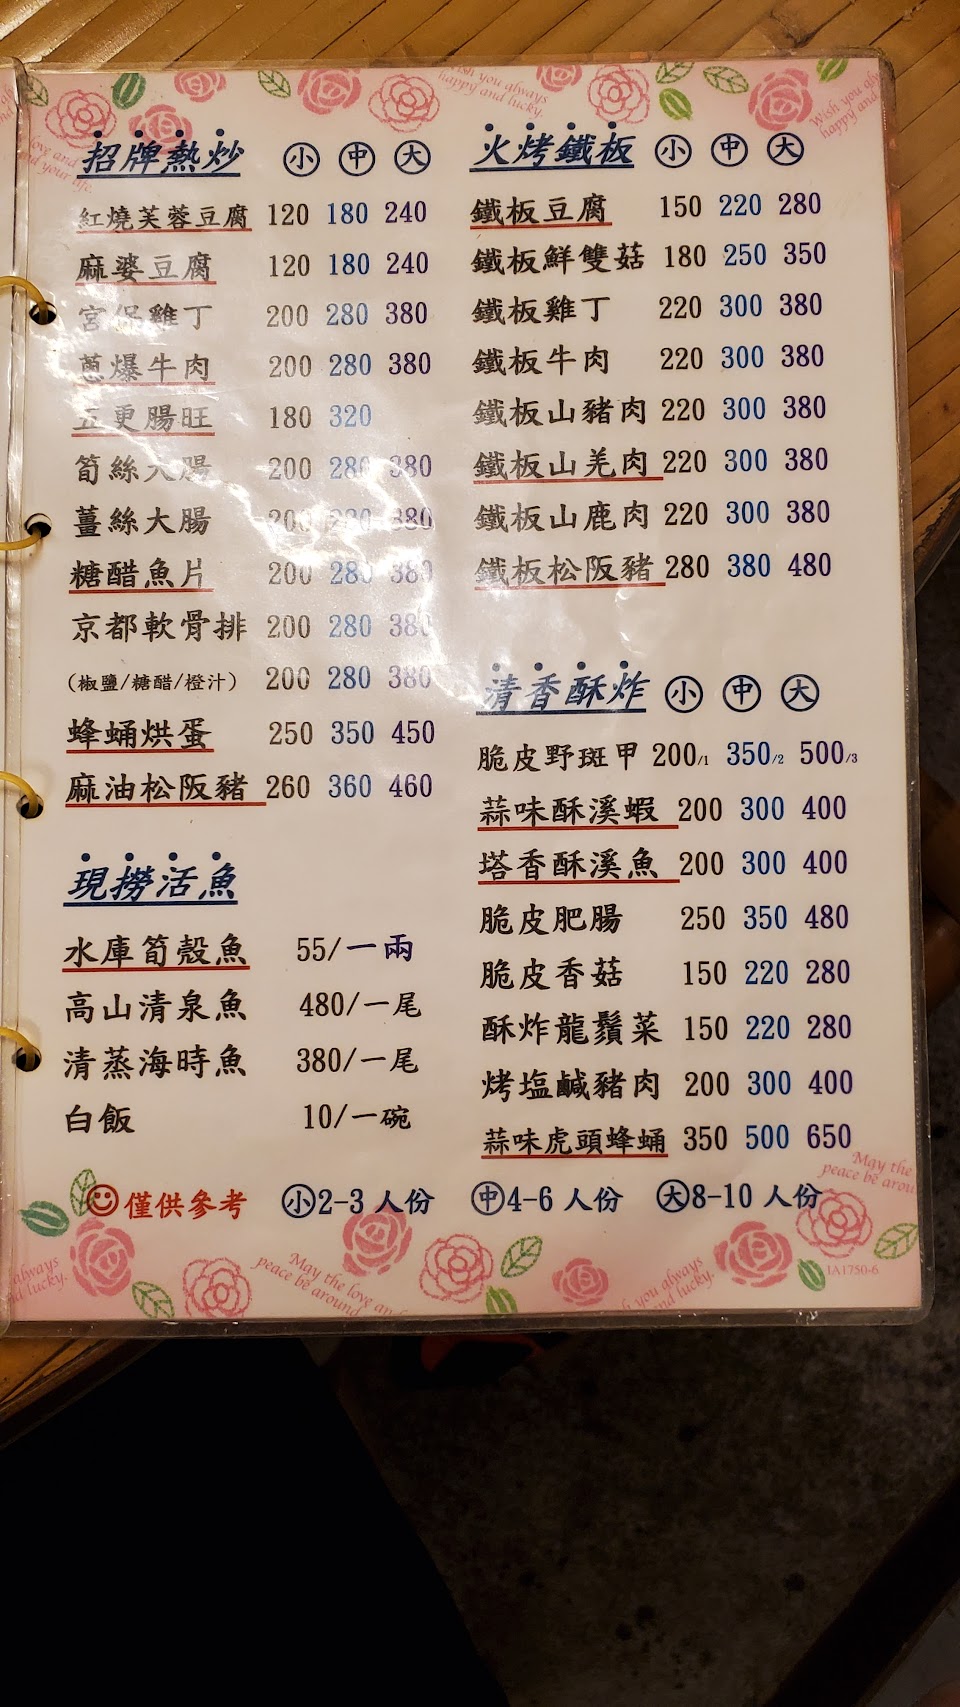 招牌熱炒 小 中 大
紅燒芙蓉豆腐 120 180 240
麻婆豆腐 120 180 240
宮保雞丁 200 280 380
蔥爆牛肉 200 280 380
五更腸旺 180 320
筍絲大腸 200 280 380
薑絲大腸 200 280 380
糖醋魚片 200 280 380
京都軟骨排 200 280 380
(椒鹽/糖醋/橙汁) 200 280 380
蜂蛹烘蛋 250 350 450
麻油松阪豬 260 360 460
現撈活魚
水庫筍殼魚 55/一兩
高山清泉魚 480/一尾
清蒸海時魚 380/一尾
白飯 10/一碗
火烤鐵板 小 中 大
鐵板豆腐 150 220 280
鐵板鮮雙菇 180 250 350
鐵板雞丁 220 300 380
鐵板牛肉 220 300 380
鐵板山豬肉 220 300 380
鐵板山羌肉 220 300 380
鐵板山鹿肉 220 300 380
鐵板松阪豬 280 380 480
清香酥炸 小 中 大
脆皮野斑甲 200/1 350/2 500/3
蒜味酥溪蝦 200 300 400
塔香酥溪魚 200 300 400
脆皮肥腸 250 350 480
脆皮香菇 150 220 280
酥炸龍鬚菜 150 220 280
烤塩鹹豬肉 200 300 400
蒜味虎頭蜂蛹 350 500 650
僅供參考 小2-3 人份 中4-6 人份 大8-10 人份
Wish you always
happy and lucky.
May the love and
peace be around
1A1750-6